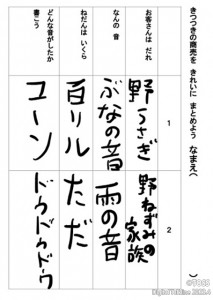 きつつきの商売を きれいに まとめよう なまえ( )
お客さんは だれ
なんの 音
ねだんは いくら
どんな音がしたか
書こう
1
野うさぎ
ぶなの音
百リル
コーン
2
野ねずみの
家族
雨の音
ただ
ドゥドゥドゥ
©TOSS